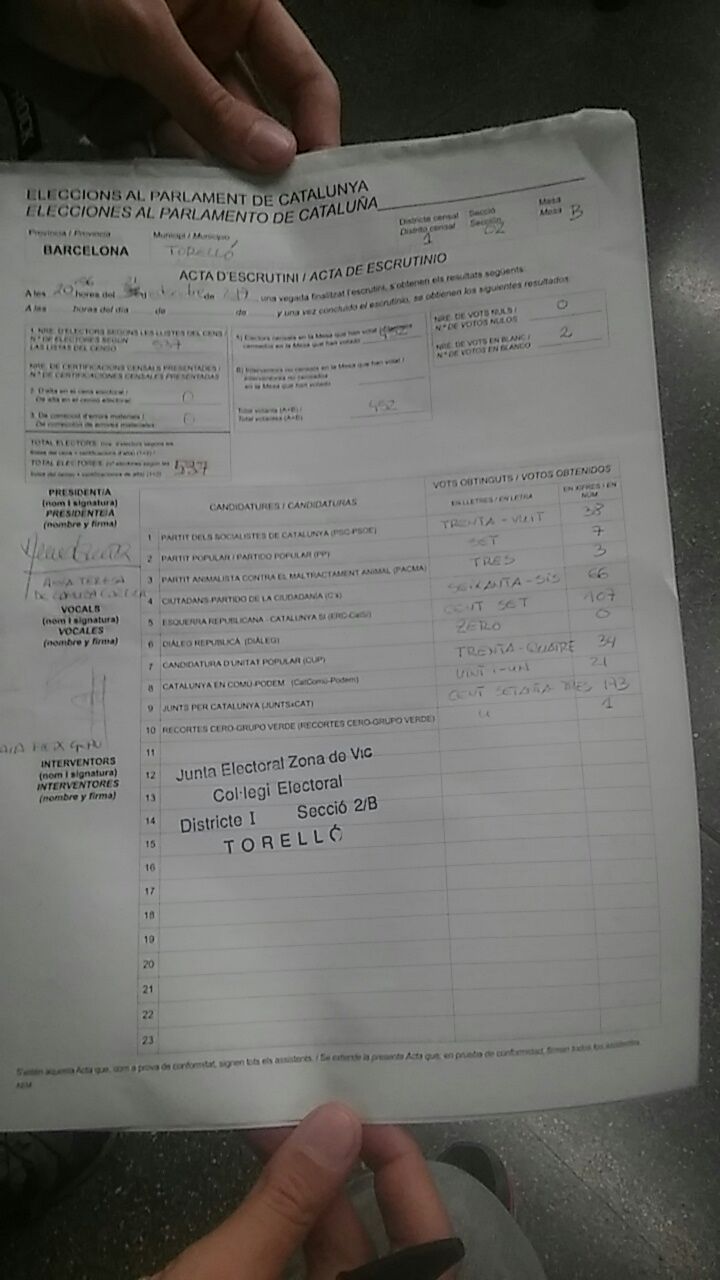 ELECCIONS AL PARLAMENT DE CATALUNYA
ELECCIONES AL PARLAMENTO DE CATALUÑA
Província / Provincia
Municipi / Municipio
Districte censal
Distrito censal
Secció
Sección
Mesa
Mesa
BARCELONA
TORELLÓ
1
02
B
ACTA D'ESCRUTINI / ACTA DE ESCRUTINIO
A les 20 hores del de una vegada finalitzat l'escrutini, s'obtenen els resultats següents:
A las horas del día de de y una vez concluido el escrutinio, se obtienen los siguientes resultados:
1. NRE. D'ELECTORS SEGONS LES LLISTES DEL CENS /
N.º DE ELECTORES SEGÚN
LAS LISTAS DEL CENSO
537
NRE. DE CERTIFICACIONS CENSALS PRESENTADES /
N.º DE CERTIFICACIONES CENSALES PRESENTADAS
2. D'alta en el cens electoral /
De alta en el censo electoral
0
3. De correcció d'errors materials /
De corrección de errores materiales
0
TOTAL ELECTORS
TOTAL ELECTORES
537
A) Electors censats en la Mesa que han votat / Electores
censados en la Mesa que han votado
452
B) Interventors no censats en la Mesa que han votat /
Interventores no censados
en la Mesa que han votado
Total votants (A+B) /
Total votantes (A+B)
452
NRE. DE VOTS NULS /
N.º DE VOTOS NULOS
0
NRE. DE VOTS EN BLANC /
N.º DE VOTOS EN BLANCO
2
PRESIDENT/A
(nom i signatura)
PRESIDENTE/A
(nombre y firma)
ANNA TERESA
VOCALS
(nom i signatura)
VOCALES
(nombre y firma)
INTERVENTORS
(nom i signatura)
INTERVENTORES
(nombre y firma)
CANDIDATURES / CANDIDATURAS
VOTS OBTINGUTS / VOTOS OBTENIDOS
EN LLETRES / EN LETRA
EN XIFRES / EN NÚM.
1 PARTIT DELS SOCIALISTES DE CATALUNYA (PSC-PSOE) TRENTA-VUIT 38
2 PARTIT POPULAR / PARTIDO POPULAR (PP) SET 7
3 PARTIT ANIMALISTA CONTRA EL MALTRACTAMENT ANIMAL (PACMA) TRES 3
4 CIUTADANS-PARTIDO DE LA CIUDADANÍA (C's) SEIXANTA-SIS 66
5 ESQUERRA REPUBLICANA - CATALUNYA SÍ (ERC-CatSí) CENT SET 107
6 DIÀLEG REPUBLICÀ (DIÀLEG) ZERO 0
7 CANDIDATURA D'UNITAT POPULAR (CUP) TRENTA-QUATRE 34
8 CATALUNYA EN COMÚ-PODEM (CatComú-Podem) VINT-I-UN 21
9 JUNTS PER CATALUNYA (JUNTSxCAT) CENT SETANTA TRES 173
10 RECORTES CERO-GRUPO VERDE (RECORTES CERO-GRUPO VERDE) U 1
11
12
13
14
15
16
17
18
19
20
21
22
23
Junta Electoral Zona de Vic
Col·legi Electoral
Districte I Secció 2/B
TORELLÓ
S'estén aquesta Acta que, com a prova de conformitat, signen tots els assistents. / Se extiende la presente Acta que, en prueba de conformidad, firman todos los asistentes.